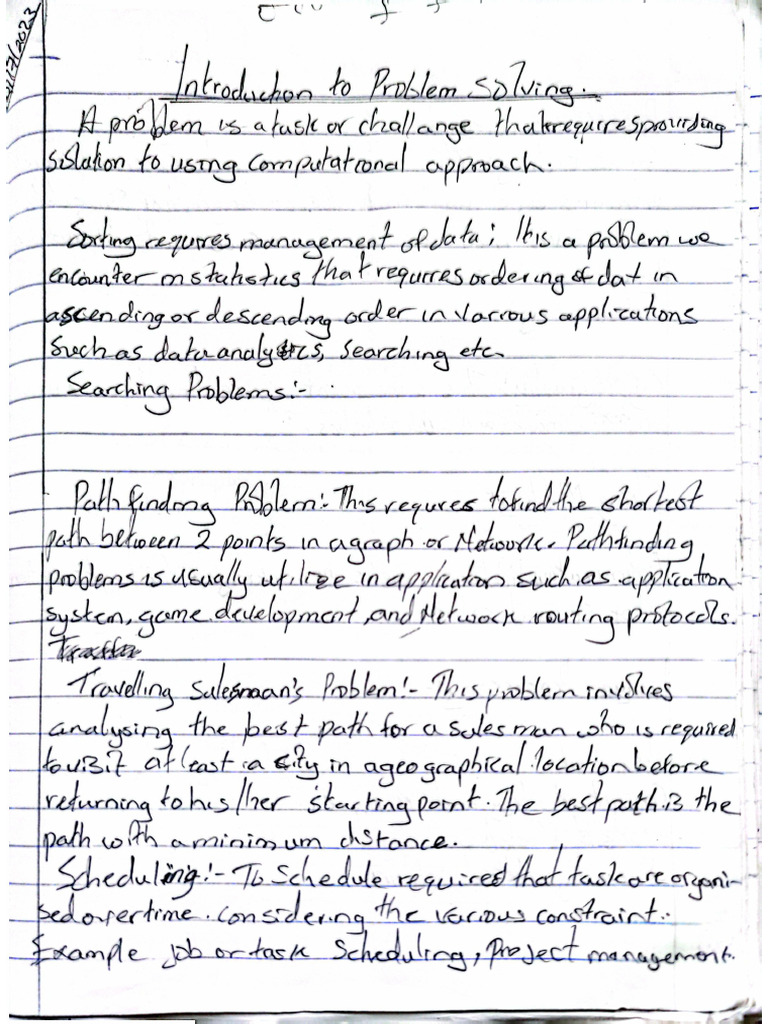 /7/2023
Introduction to Problem Solving.
A problem is a task or challange that requires providing
solution to using computational approach.
Sorting requires management of data; It is a problem we
encounter in statistics that requires ordering of dat in
ascending or descending order in various applications
such as data analytics, searching etc.
Searching Problems:-
Path finding Problem:- This requres to find the shortest
path between 2 points in a graph or Network. Pathfinding
problems is usually utilize in application such as application
system, game development, and Network routing protocols.
Travelling Salesmaan's Problem:- This problem involves
analysing the best path for a sales man who is required
to visit at least a city in a geographical location before
returning to his/her starting point. The best path is the
path with a minimum distance.
Scheduling:- To Schedule required that task are organi-
sed over time. considering the various constraint.
Example job or task Scheduling, project management.